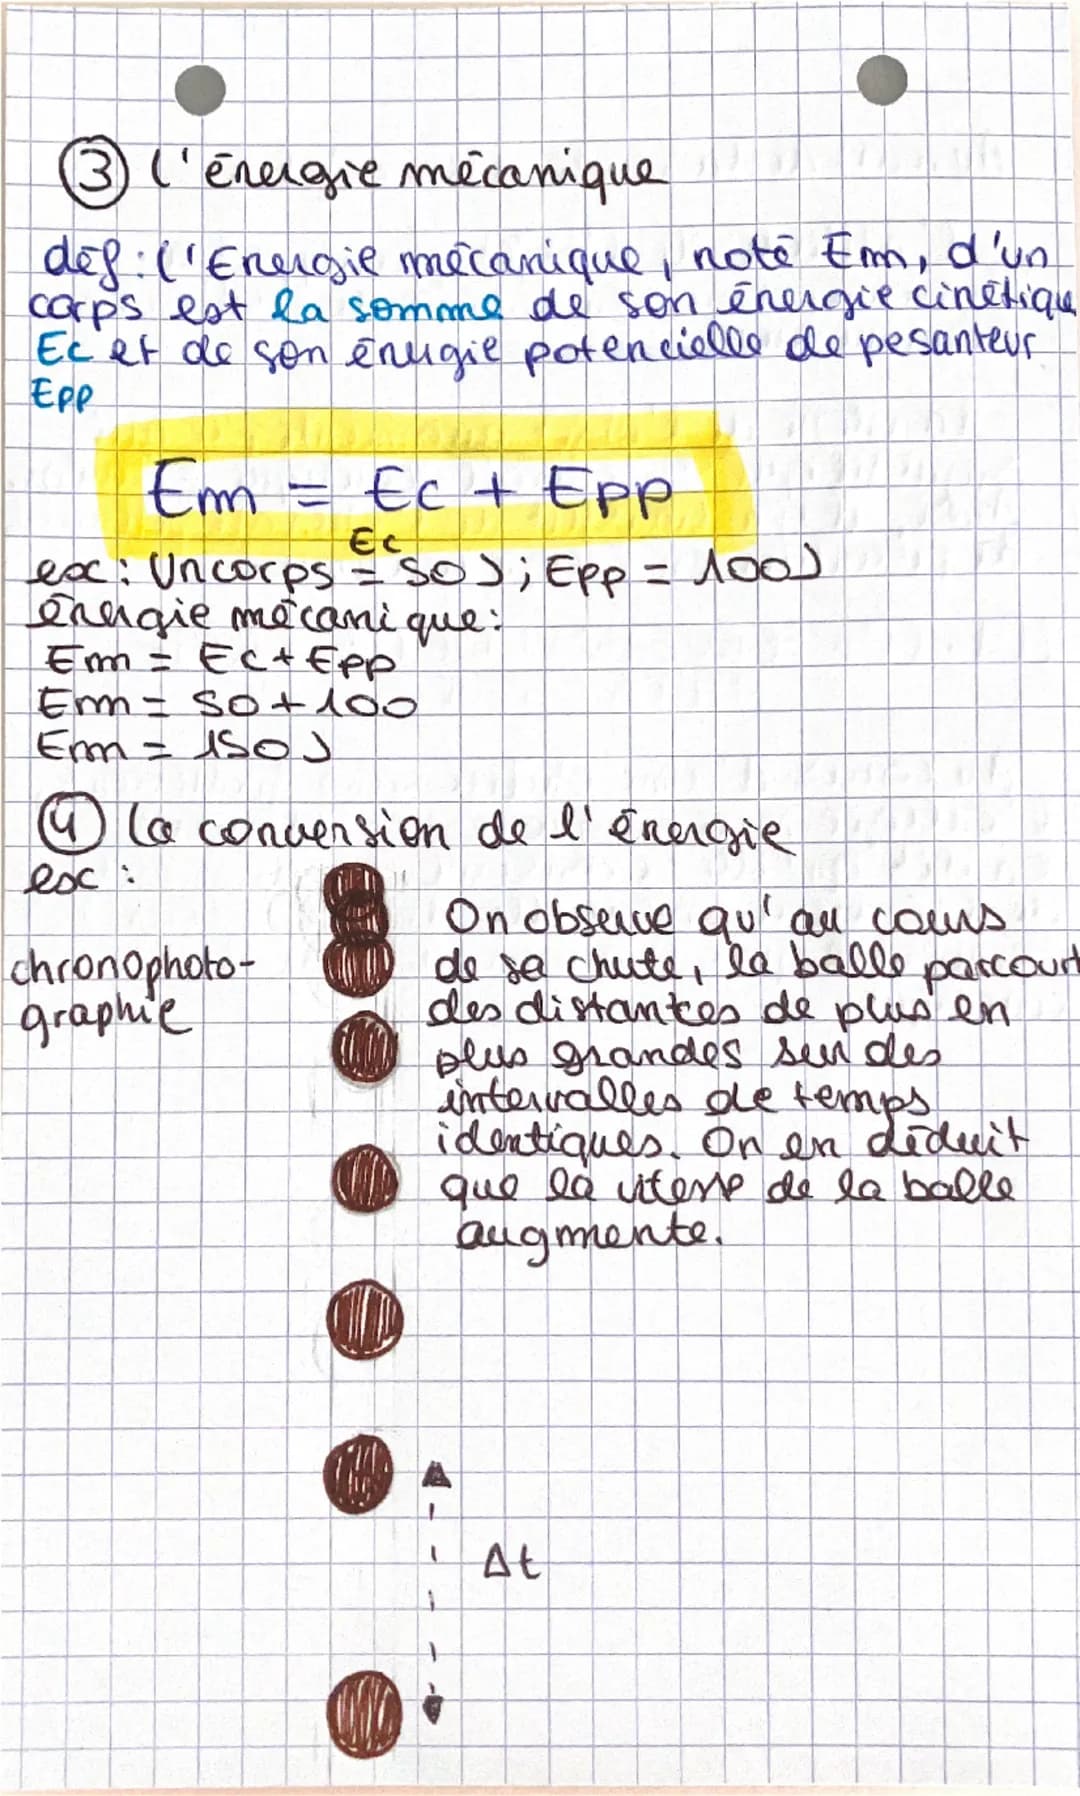 ③ L'énergie mécanique
déf : L'Energie mécanique, noté Em, d'un
corps est la somme de son énergie cinétique
Ec et de son énergie potencielle de pesanteur
Epp
Em = Ec + Epp
Ec
ex : Un corps = 50J ; Epp = 100J
énergie mécanique :
Em = Ec + Epp
Em = 50 + 100
Em = 150J
④ La conversion de l'énergie
ex :
chronophoto-
graphie
On observe qu'au cours
de sa chute, la balle parcourt
des distantes de plus en
plus grandes sur des
intervalles de temps
identiques. On en déduit
que la vitesse de la balle
augmente.
Δt